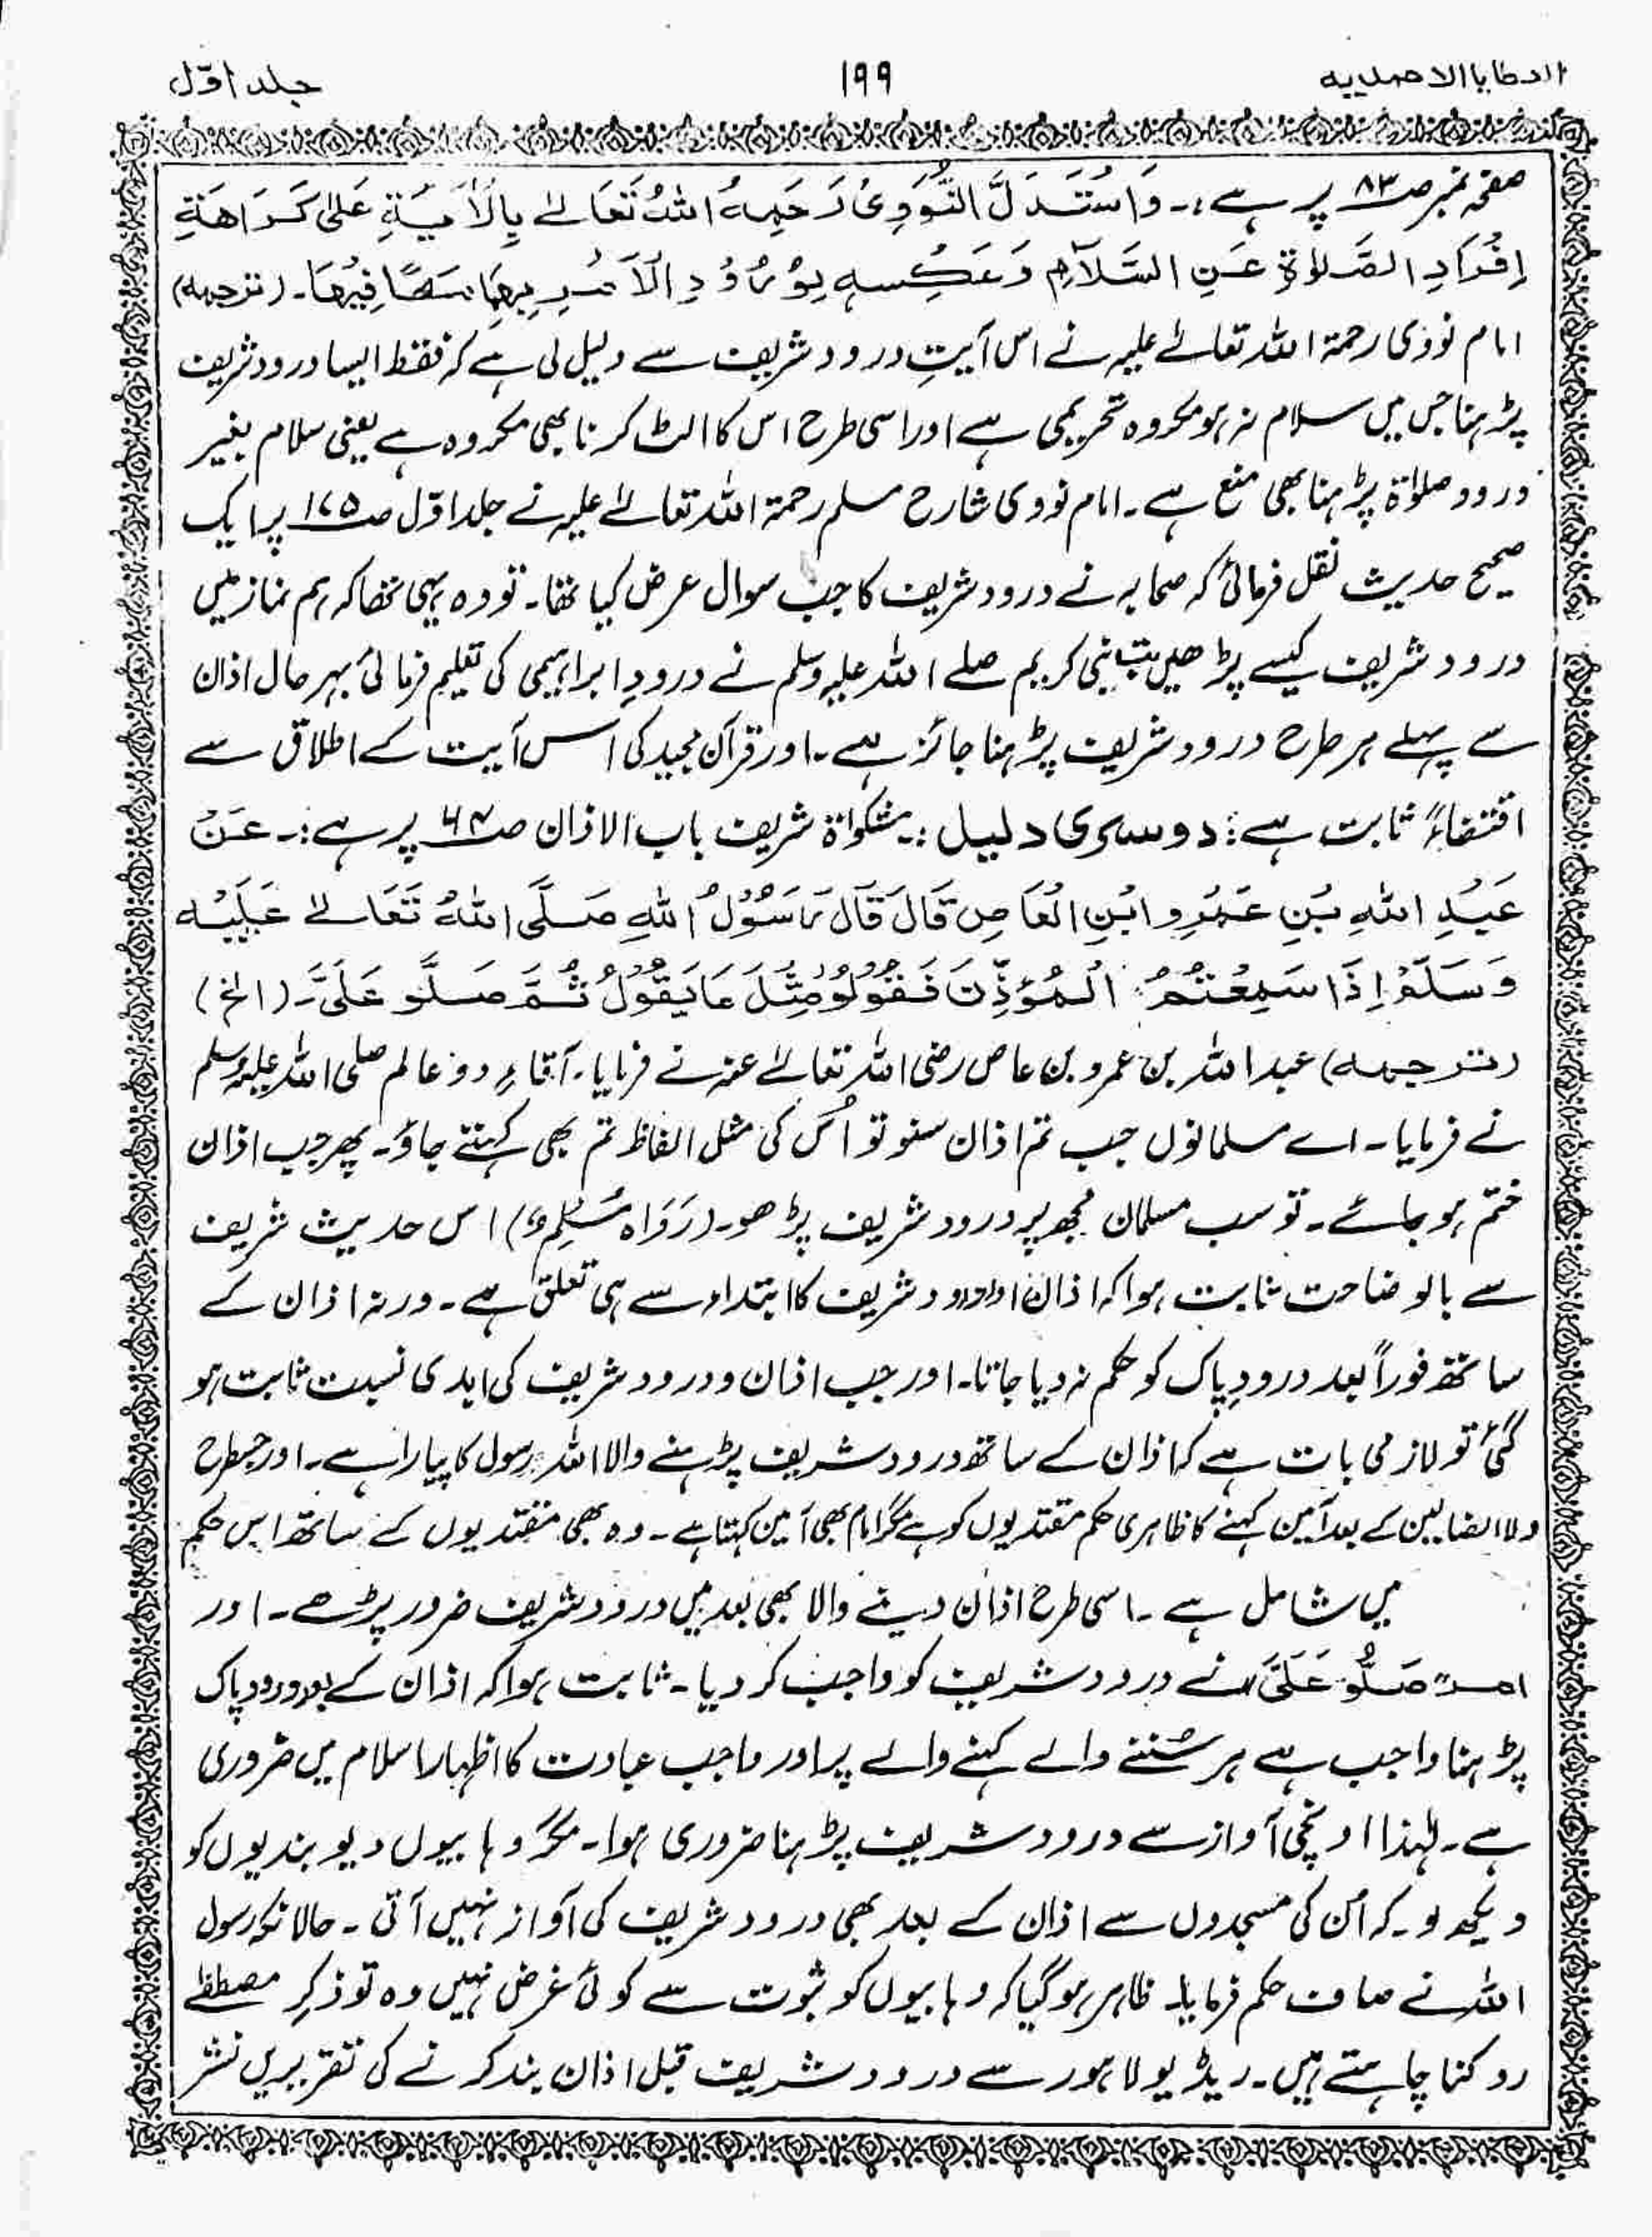 العطایا الاحمدیہ
۱۹۹
جلد اوّل
صفحہ نمبر صـ۸۳ پر ہے :۔ وَاسْتَدَلَّ النَّوَوِیُّ رَحِمَہُ اللہُ تَعَالٰے بِالْاٰیَۃِ عَلیٰ کَرَاھَۃِ
اِفْرَادِ الصَّلوٰۃِ عَنِ السَّلَامِ وَعَکْسِہٖ بِوُرُوْدِ الْاَمْرِ بِھِمَا مَعًا فِیْھَا۔ (ترجمہ)
امام نووی رحمۃ اللہ تعالےٰ علیہ نے اس آیتِ درود شریف سے دلیل لی ہے کہ فقط ایسا درود شریف
پڑہنا جس میں سلام نہ ہو مکروہ تحریمی ہے اور اسی طرح اس کا الٹ کرنا بھی مکروہ ہے یعنی سلام بغیر
درود صلوٰۃ پڑہنا بھی منع ہے ۔ امام نووی شارح مسلم رحمۃ اللہ تعالےٰ علیہ نے جلد اوّل صـ۱۷۵ پر ایک
صحیح حدیث نقل فرمائی کہ صحابہ نے درود شریف کا جب سوال عرض کیا تھا۔ تو وہ یہی تھا کہ ہم نماز میں
درود شریف کیسے پڑھیں تب نبی کریم صلے اللہ علیہ وسلم نے درودِ ابراہیمی کی تعلیم فرمائی بہر حال اذان
سے پہلے ہر طرح درود شریف پڑہنا جائز ہے ۔ اور قرآن مجید کی اس آیت کے اطلاق سے
اقتضاءً ثابت ہے : دوسری دلیل :۔ مشکوٰۃ شریف باب الاذان صـ۶۴ پر ہے :۔ عَنْ
عَبْدِ اللہِ بْنِ عَمْرِو ابْنِ الْعَاصِ قَالَ قَالَ رَسُوْلُ اللہِ صَلَّی اللہُ تَعَالٰے عَلَیْہ
وَسَلَّمَ اِذَا سَمِعْتُمُ الْمُؤَذِّنَ فَقُوْلُوْ مِثْلَ مَا یَقُوْلُ ثُمَّ صَلُّو عَلَیَّ۔ (الخ)
(ترجمہ) عبد اللہ بن عمرو بن عاص رضی اللہ تعالےٰ عنہ نے فرمایا۔ آقاءِ دو عالم صلی اللہ علیہ وسلم
نے فرمایا۔ اے مسلمانوں جب تم اذان سنو تو اُس کی مثل الفاظ تم بھی کہتے جاؤ۔ پھر جب اذان
ختم ہو جائے ۔ تو سب مسلمان مجھ پر درود شریف پڑھو۔ (رَوَاہُ مُسْلِمٌ) اس حدیث شریف
سے بالوضاحت ثابت ہوا کہ اذان اور درود شریف کا ابتداء سے ہی تعلق ہے ۔ ورنہ اذان کے
ساتھ فوراً بعد درودِ پاک کو حکم نہ دیا جاتا۔ اور جب اذان و درود شریف کی ابدی نسبت ثابت ہو
گئی تو لازمی بات ہے کہ اذان کے ساتھ درود شریف پڑہنے والا اللہ رسول کا پیارا ہے ۔ اور جسطرح
ولا الضالین کے بعد آمین کہنے کا ظاہری حکم مقتدیوں کو ہے مگر امام بھی آمین کہتا ہے ۔ وہ بھی مقتدیوں کے ساتھ اس حکم
میں شامل ہے ۔ اسی طرح اذان دینے والا بھی بعد میں درود شریف ضرور پڑھے ۔ اور
امر "صَلُّوْ عَلَیَّ" نے درود شریف کو واجب کر دیا۔ ثابت ہوا کہ اذان کے بعد درود پاک
پڑہنا واجب ہے ہر سُننے والے کہنے والے پر اور واجب عبادت کا اظہار اسلام میں ضروری
ہے ۔ لہٰذا اونچی آواز سے درود شریف پڑہنا ضروری ہوا۔ مگر وہابیوں دیوبندیوں کو
دیکھ لو۔ کہ اُن کی مسجدوں سے اذان کے بعد بھی درود شریف کی آواز نہیں آتی ۔ حالانکہ رسول
اللہ نے صاف حکم فرمایا۔ ظاہر ہو گیا کہ وہابیوں کو ثبوت سے کوئی غرض نہیں وہ تو ذکرِ مصطفےٰ
روکنا چاہتے ہیں۔ ریڈیو لاہور سے درود شریف قبل اذان بند کرنے کی تقریریں نشر